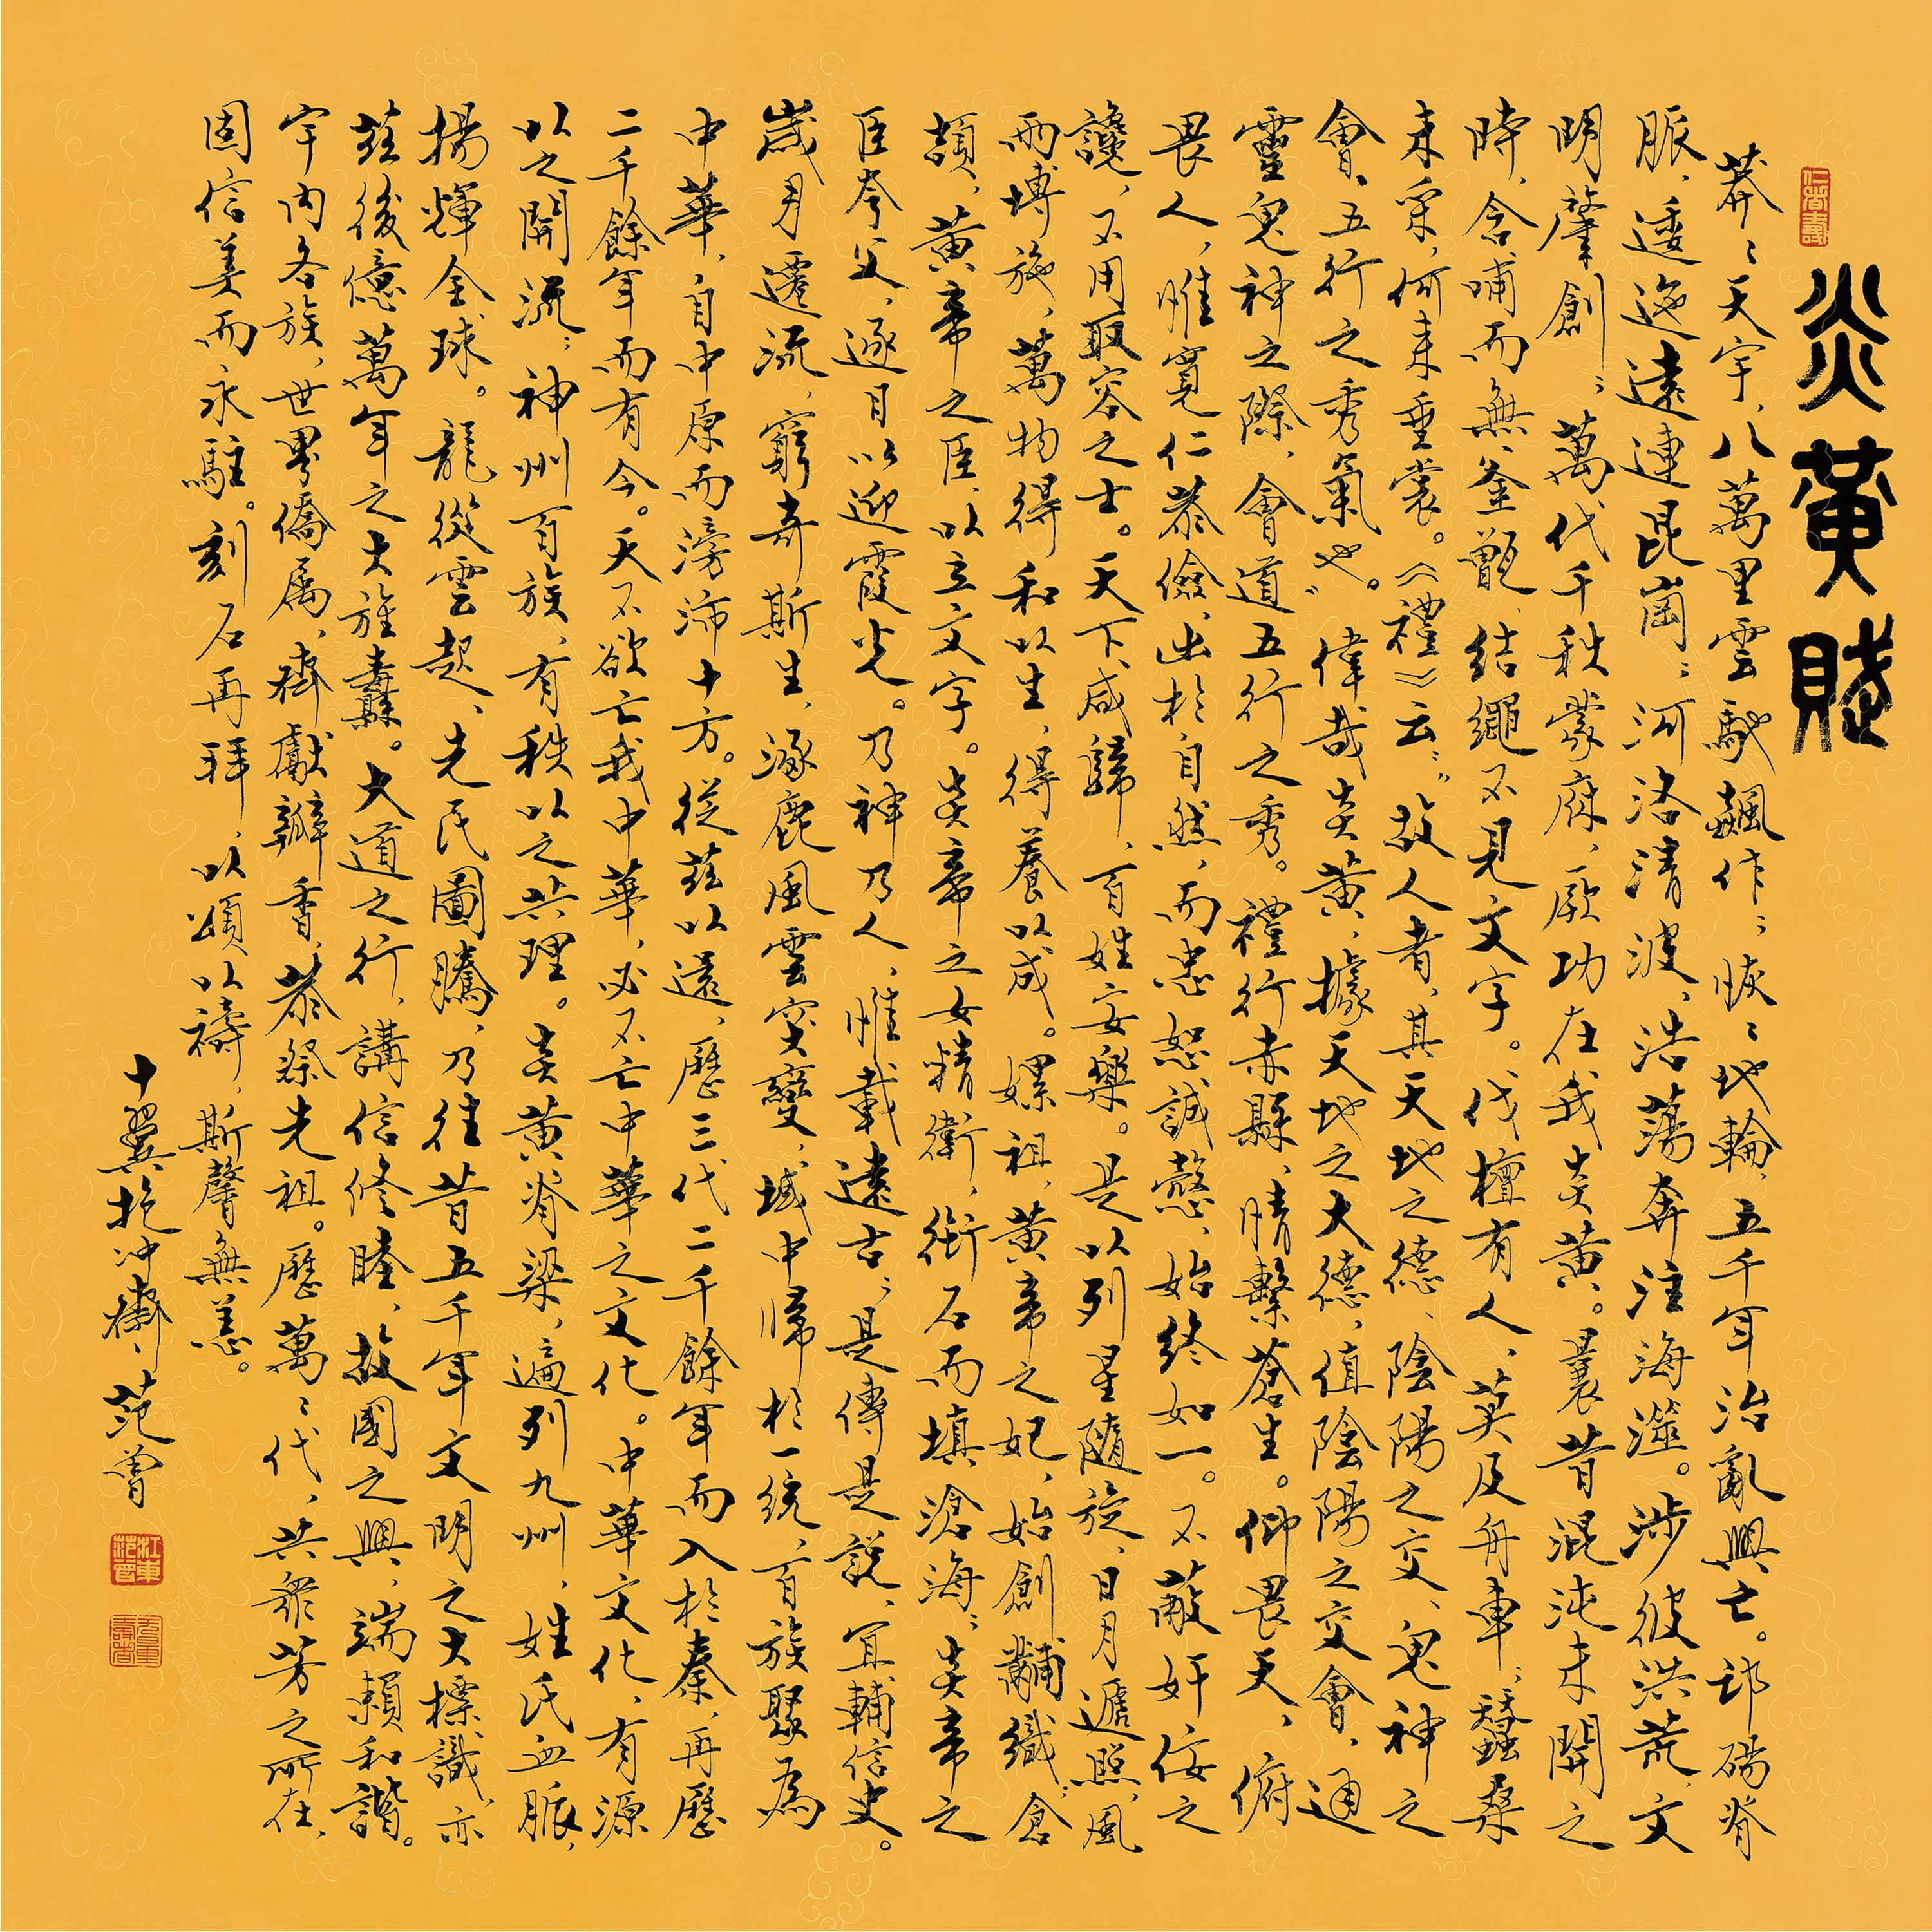 炎黃賦
莽莽天宇，八萬里雲馳飆作；恢恢地輪，五千年治亂興亡。邙碭脊
脈，逶迤遠連昆崗；河洛清波，浩蕩奔注海澨。涉彼洪荒，文
明肇創；萬代千秋蒙庥，厥功在我炎黃。曩昔混沌未開之
時，含哺而無釜甑，結繩不見文字。伐檀有人，莫及舟車；蠶桑
未采，何來垂裳。《禮》云：“故人者，其天地之德，陰陽之交，鬼神之
會，五行之秀氣也。”偉哉炎黃，據天地之大德，值陰陽之交會，通
靈鬼神之際，會道五行之秀。禮行赤縣，情繫蒼生。仰畏天，俯
畏人，惟寬仁恭儉，出於自然，而忠恕誠愨，始終如一。不蔽奸佞之
讒，不用取容之士。天下咸歸，百姓安樂。是以列星隨旋，日月遞照，風
雨博施，萬物得和以生，得養以成。嫘祖，黃帝之妃，始創黼織；倉
頡，黃帝之臣，以立文字。炎帝之女精衛，銜石而填滄海；炎帝之
臣夸父，逐日以迎霞光。乃神乃人，惟載遠古；是傳是說，宜輔信史。
歲月遷流，窮奇斯生，涿鹿風雲突變，域中歸於一統，百族聚為
中華，自中原而滂沛十方。從茲以還，歷三代二千餘年而入於秦，再歷
二千餘年而有今。天不欲亡我中華，必不亡中華之文化。中華文化，有源
以之開流；神州百族，有秩以之共理。炎黃脊梁，遍列九州，姓氏血脈，
揚輝全球。龍從雲起，先民圖騰，乃往昔五千年文明之大標識，亦
茲後億萬年之大旌纛。大道之行，講信修睦，故國之興，端賴和諧。
宇內各族，世界僑屬，齊獻瓣香，恭祭先祖。歷萬萬代，共眾芳之所在，
固信美而永駐。刻石再拜，以頌以禱，斯馨無恙。
十翼抱沖齋，范曾
江東范曾